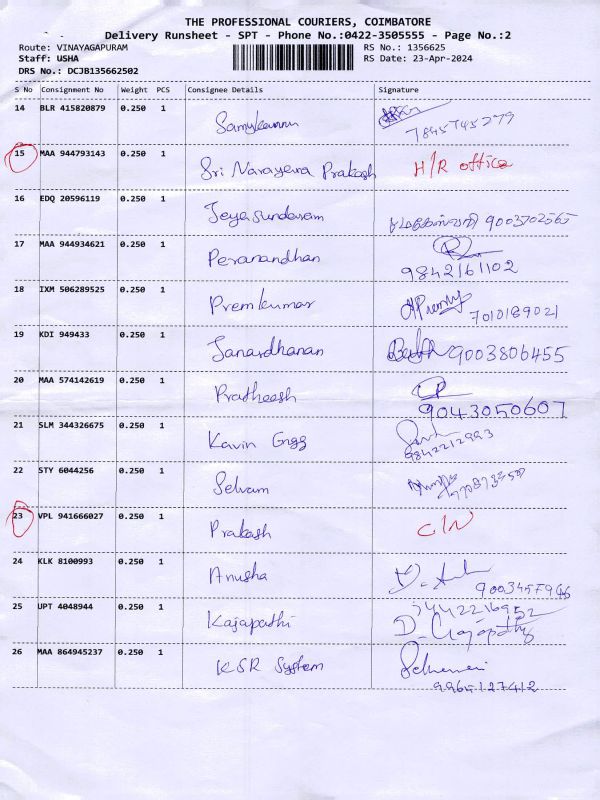 THE PROFESSIONAL COURIERS, COIMBATORE
Delivery Runsheet - SPT - Phone No.:0422-3505555 - Page No.:2
Route: VINAYAGAPURAM RS No.: 1356625
Staff: USHA RS Date: 23-Apr-2024
DRS No.: DCJB135662502
S No Consignment No Weight PCS Consignee Details Signature
14 BLR 415820879 0.250 1
7845745279
15 MAA 944793143 0.250 1 Sri Narayana Prakash H/R office
16 EDQ 20596119 0.250 1 Jeyasundaram 9003702565
17 MAA 944934621 0.250 1 Peranandhan
9842161102
18 IXM 506289525 0.250 1 Premkumar 7010189021
19 KDI 949433 0.250 1 Janardhanan 9003806455
20 MAA 574142619 0.250 1 Pratheesh
9043050607
21 SLM 344326675 0.250 1 Kavin Engg
9842212993
22 STY 6044256 0.250 1 Selvam
23 VPL 941666027 0.250 1 Prakash
24 KLK 8100993 0.250 1 Anusha
25 UPT 4048944 0.250 1 Kajapathi
D. Gajapathy
26 MAA 864945237 0.250 1 KSR System
9965127412